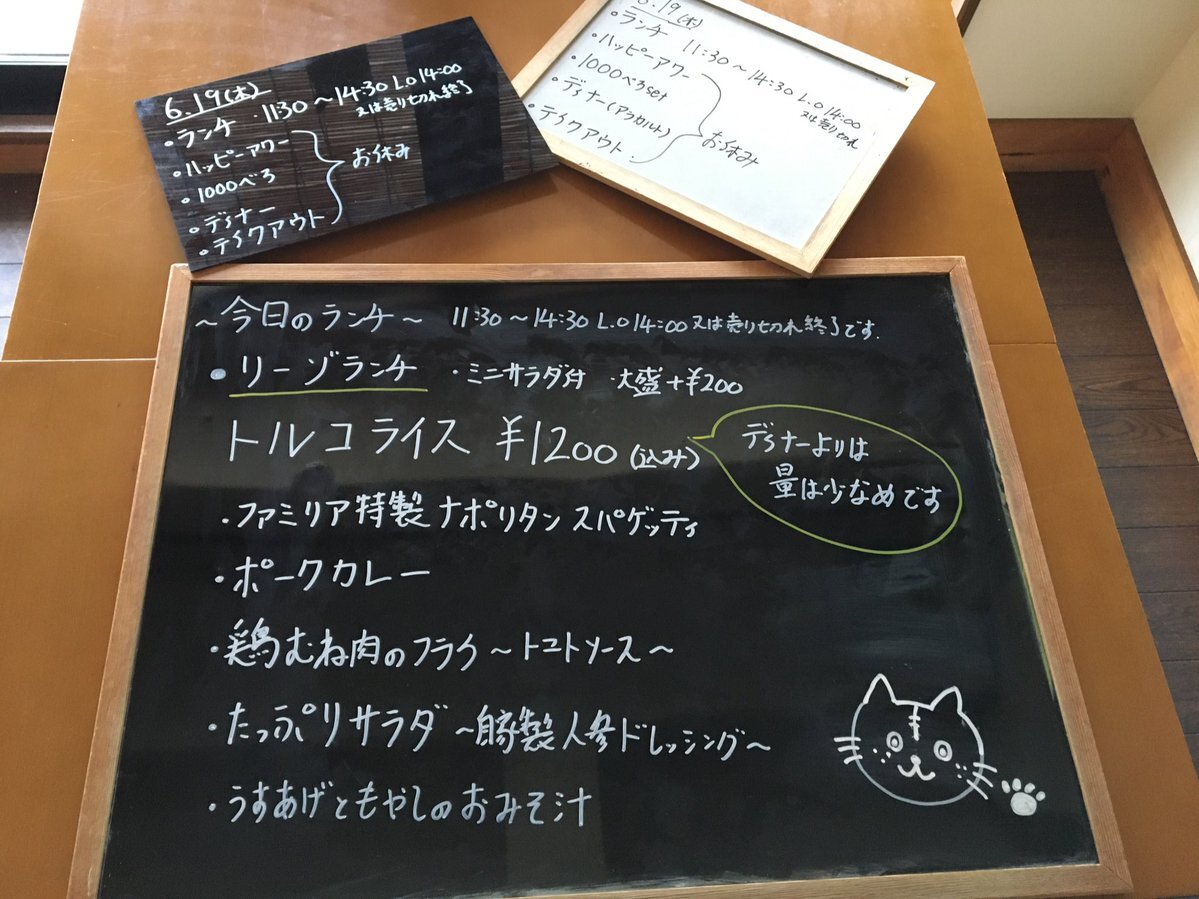 6.19(木)
・ランチ 11:30～14:30 L.O 14:00
又は売り切れ終了
・ハッピーアワー
・1000べろ
・ディナー
・テイクアウト
お休み
6.19(木)
・ランチ 11:30～14:30 L.O 14:00
又は売り切れ
・ハッピーアワー
・1000べろset
・ディナー(アラカルト)
・テイクアウト
お休み
～今日のランチ～ 11:30～14:30 L.O 14:00 又は売り切れ終了です.
・リーゾランチ ・ミニサラダ付 ・大盛+¥200
トルコライス ¥1200(込み)
ディナーよりは
量は少なめです
・ファミリア特製ナポリタンスパゲッティ
・ポークカレー
・鶏むね肉のフライ～トマトソース～
・たっぷりサラダ～自家製人参ドレッシング～
・うすあげともやしのおみそ汁